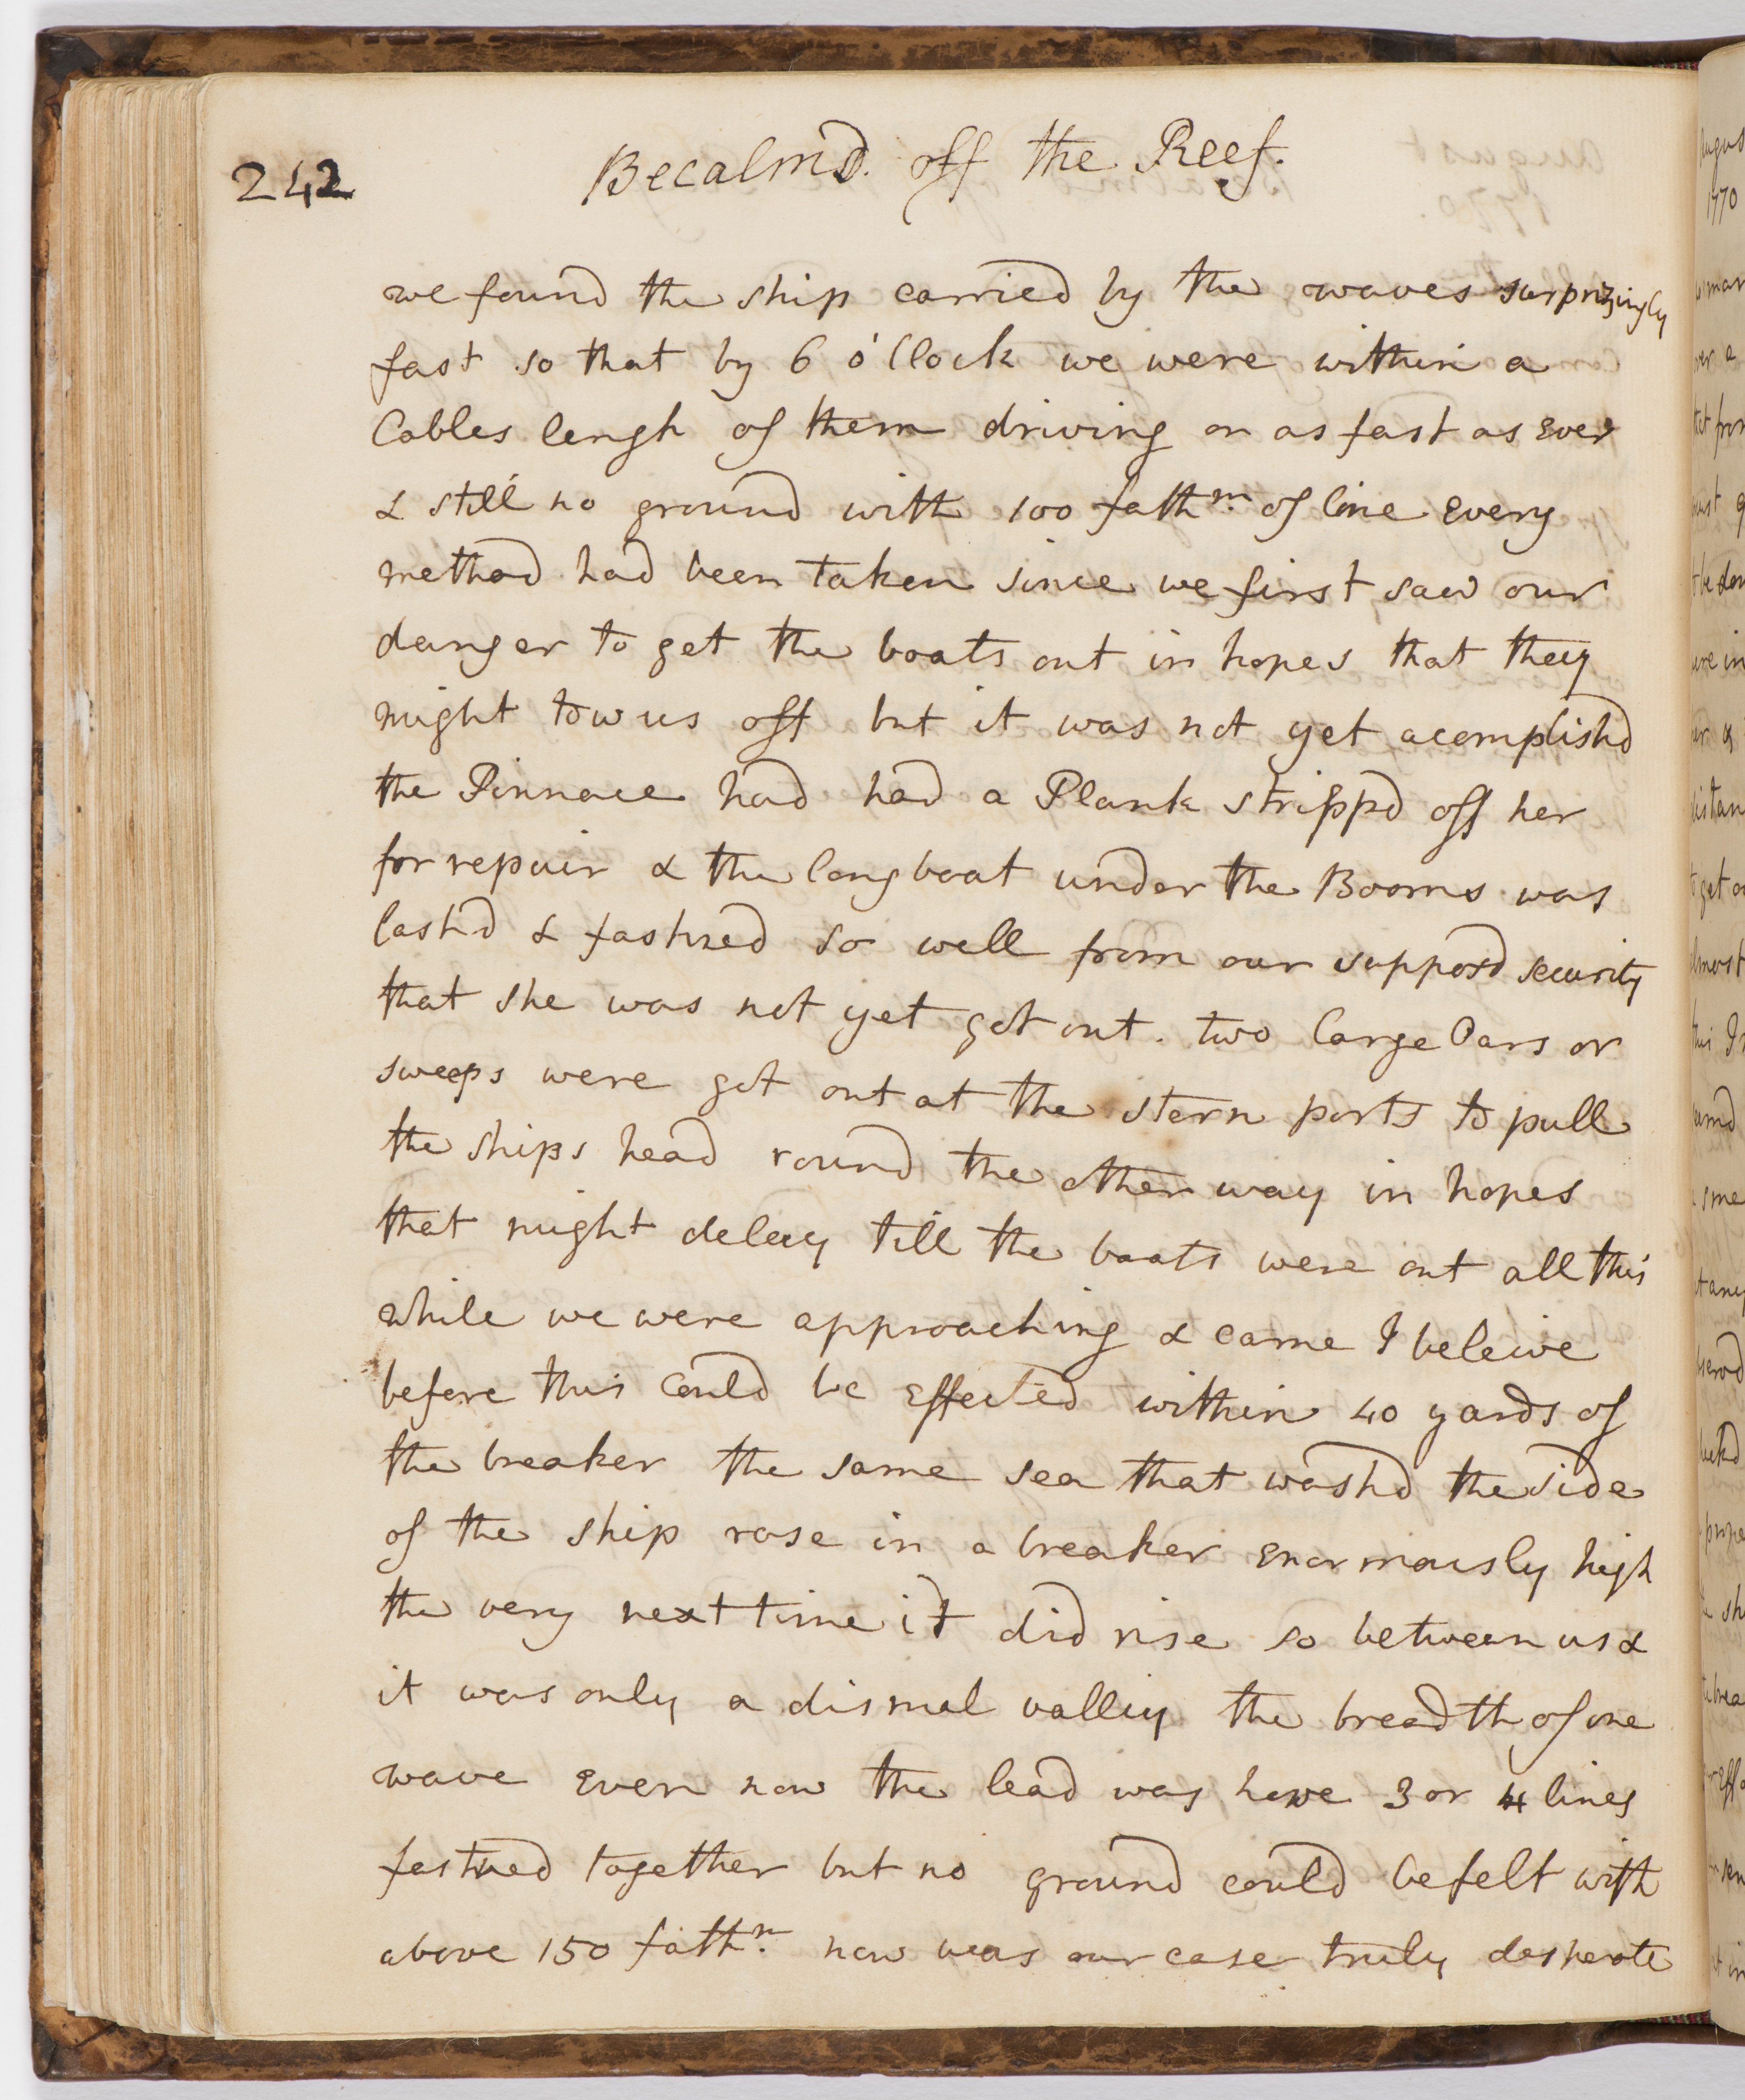 242
Becalmd. off the Reef.
we found the ship carried by the waves surprizingly
fast so that by 6 o'Clock we were within a
Cables lengh of them driving on as fast as ever
& still no ground with 100 fathm. of line Every
method had been taken since we first saw our
danger to get the boats out in hopes that they
might tow us off but it was not yet acomplishd
the Pinnace had had a Plank strippd off her
for repair & the longboat under the Booms was
lashd & fastned so well from our supposd security
that she was not yet got out. two large Oars or
sweeps were got out at the stern ports to pull
the ships head round the other way in hopes
that might delay till the boats were out all this
while we were approaching & came I beleive
before this could be effected within 40 yards of
the breaker the same sea that washd the side
of the ship rose in a breaker enormously high
the very next time it did rise so between us &
it was only a dismal valley the breadth of one
wave even now the lead was hove 3 or 4 lines
fastned together but no ground could be felt with
above 150 fathm. now was our case truly desperate
1770